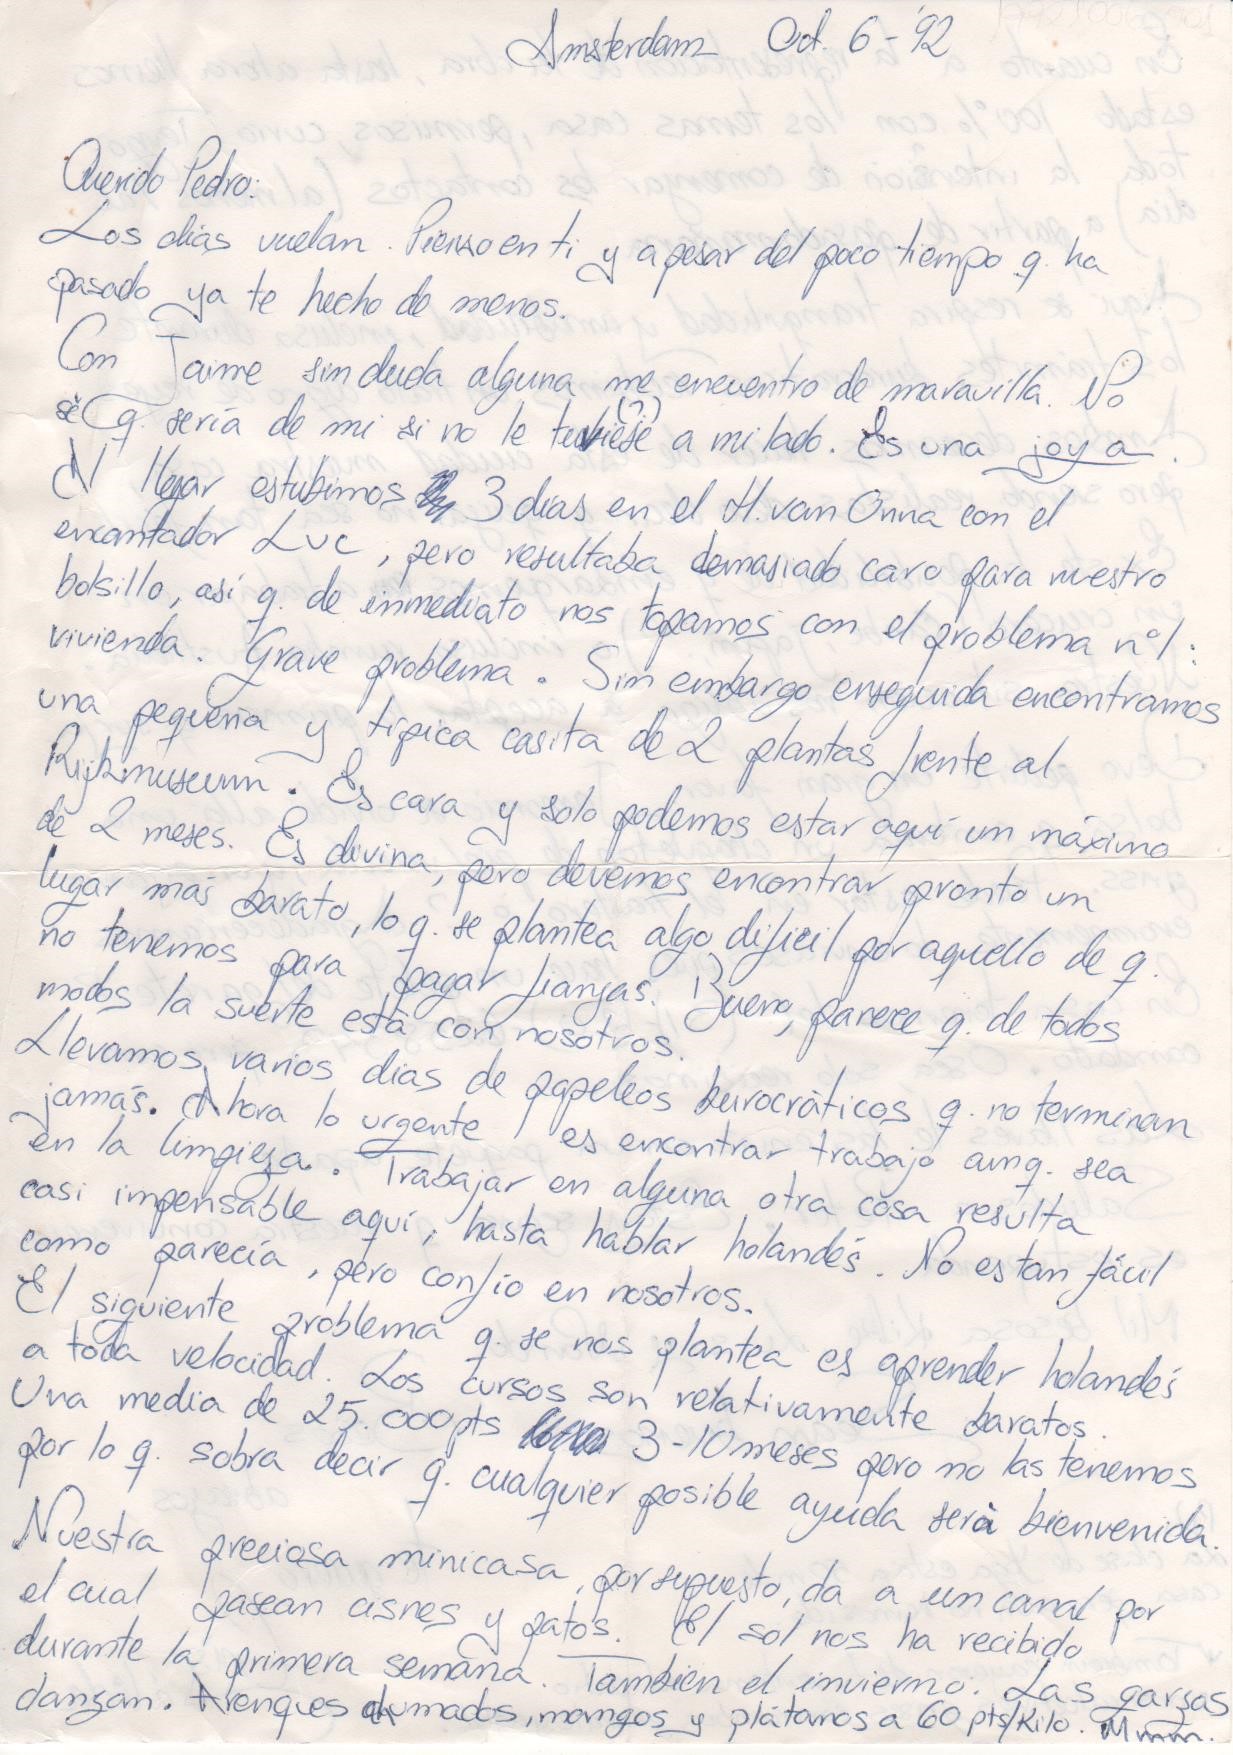 Amsterdam Oct. 6-'92
Querido Pedro:
Los dias vuelan. Pienso en ti y a pesar del poco tiempo q. ha
pasado ya te hecho de menos.
Con Jaime sin duda alguna me encuentro de maravilla. No
sé q. sería de mi si no le tuviese (?) a mi lado. Es una joya.
Al llegar estubimos 3 dias en el H. van Onna con el
encantador Luc, pero resultaba demasiado caro para nuestro
bolsillo, así q. de inmediato nos topamos con el problema nº1:
vivienda. Grave problema. Sin embargo enseguida encontramos
una pequeña y típica casita de 2 plantas frente al
Rijkmuseum. Es cara y solo podemos estar aquí un máximo
de 2 meses. Es divina, pero devemos encontrar pronto un
lugar más barato, lo q. se plantea algo dificil por aquello de q.
no tenemos para pagar fianzas. Bueno, parece q. de todos
modos la suerte está con nosotros.
Llevamos varios dias de papeleos burocráticos q. no terminan
jamás. Ahora lo urgente es encontrar trabajo aunq. sea
en la limpieza. Trabajar en alguna otra cosa resulta
casi impensable aquí, hasta hablar holandés. No es tan fácil
como parecía, pero confío en nosotros.
El siguiente problema q. se nos plantea es aprender holandés
a toda velocidad. Los cursos son relativamente baratos.
Una media de 25.000 pts 3-10 meses pero no las tenemos
por lo q. sobra decir q. cualquier posible ayuda será bienvenida.
Nuestra preciosa minicasa, por supuesto, da a un canal por
el cual pasean cisnes y patos. El sol nos ha recibido
durante la primera semana. Tambien el invierno. Las garzas
danzan. Arenques ahumados, mangos y plátanos a 60 pts/kilo. Mmm.